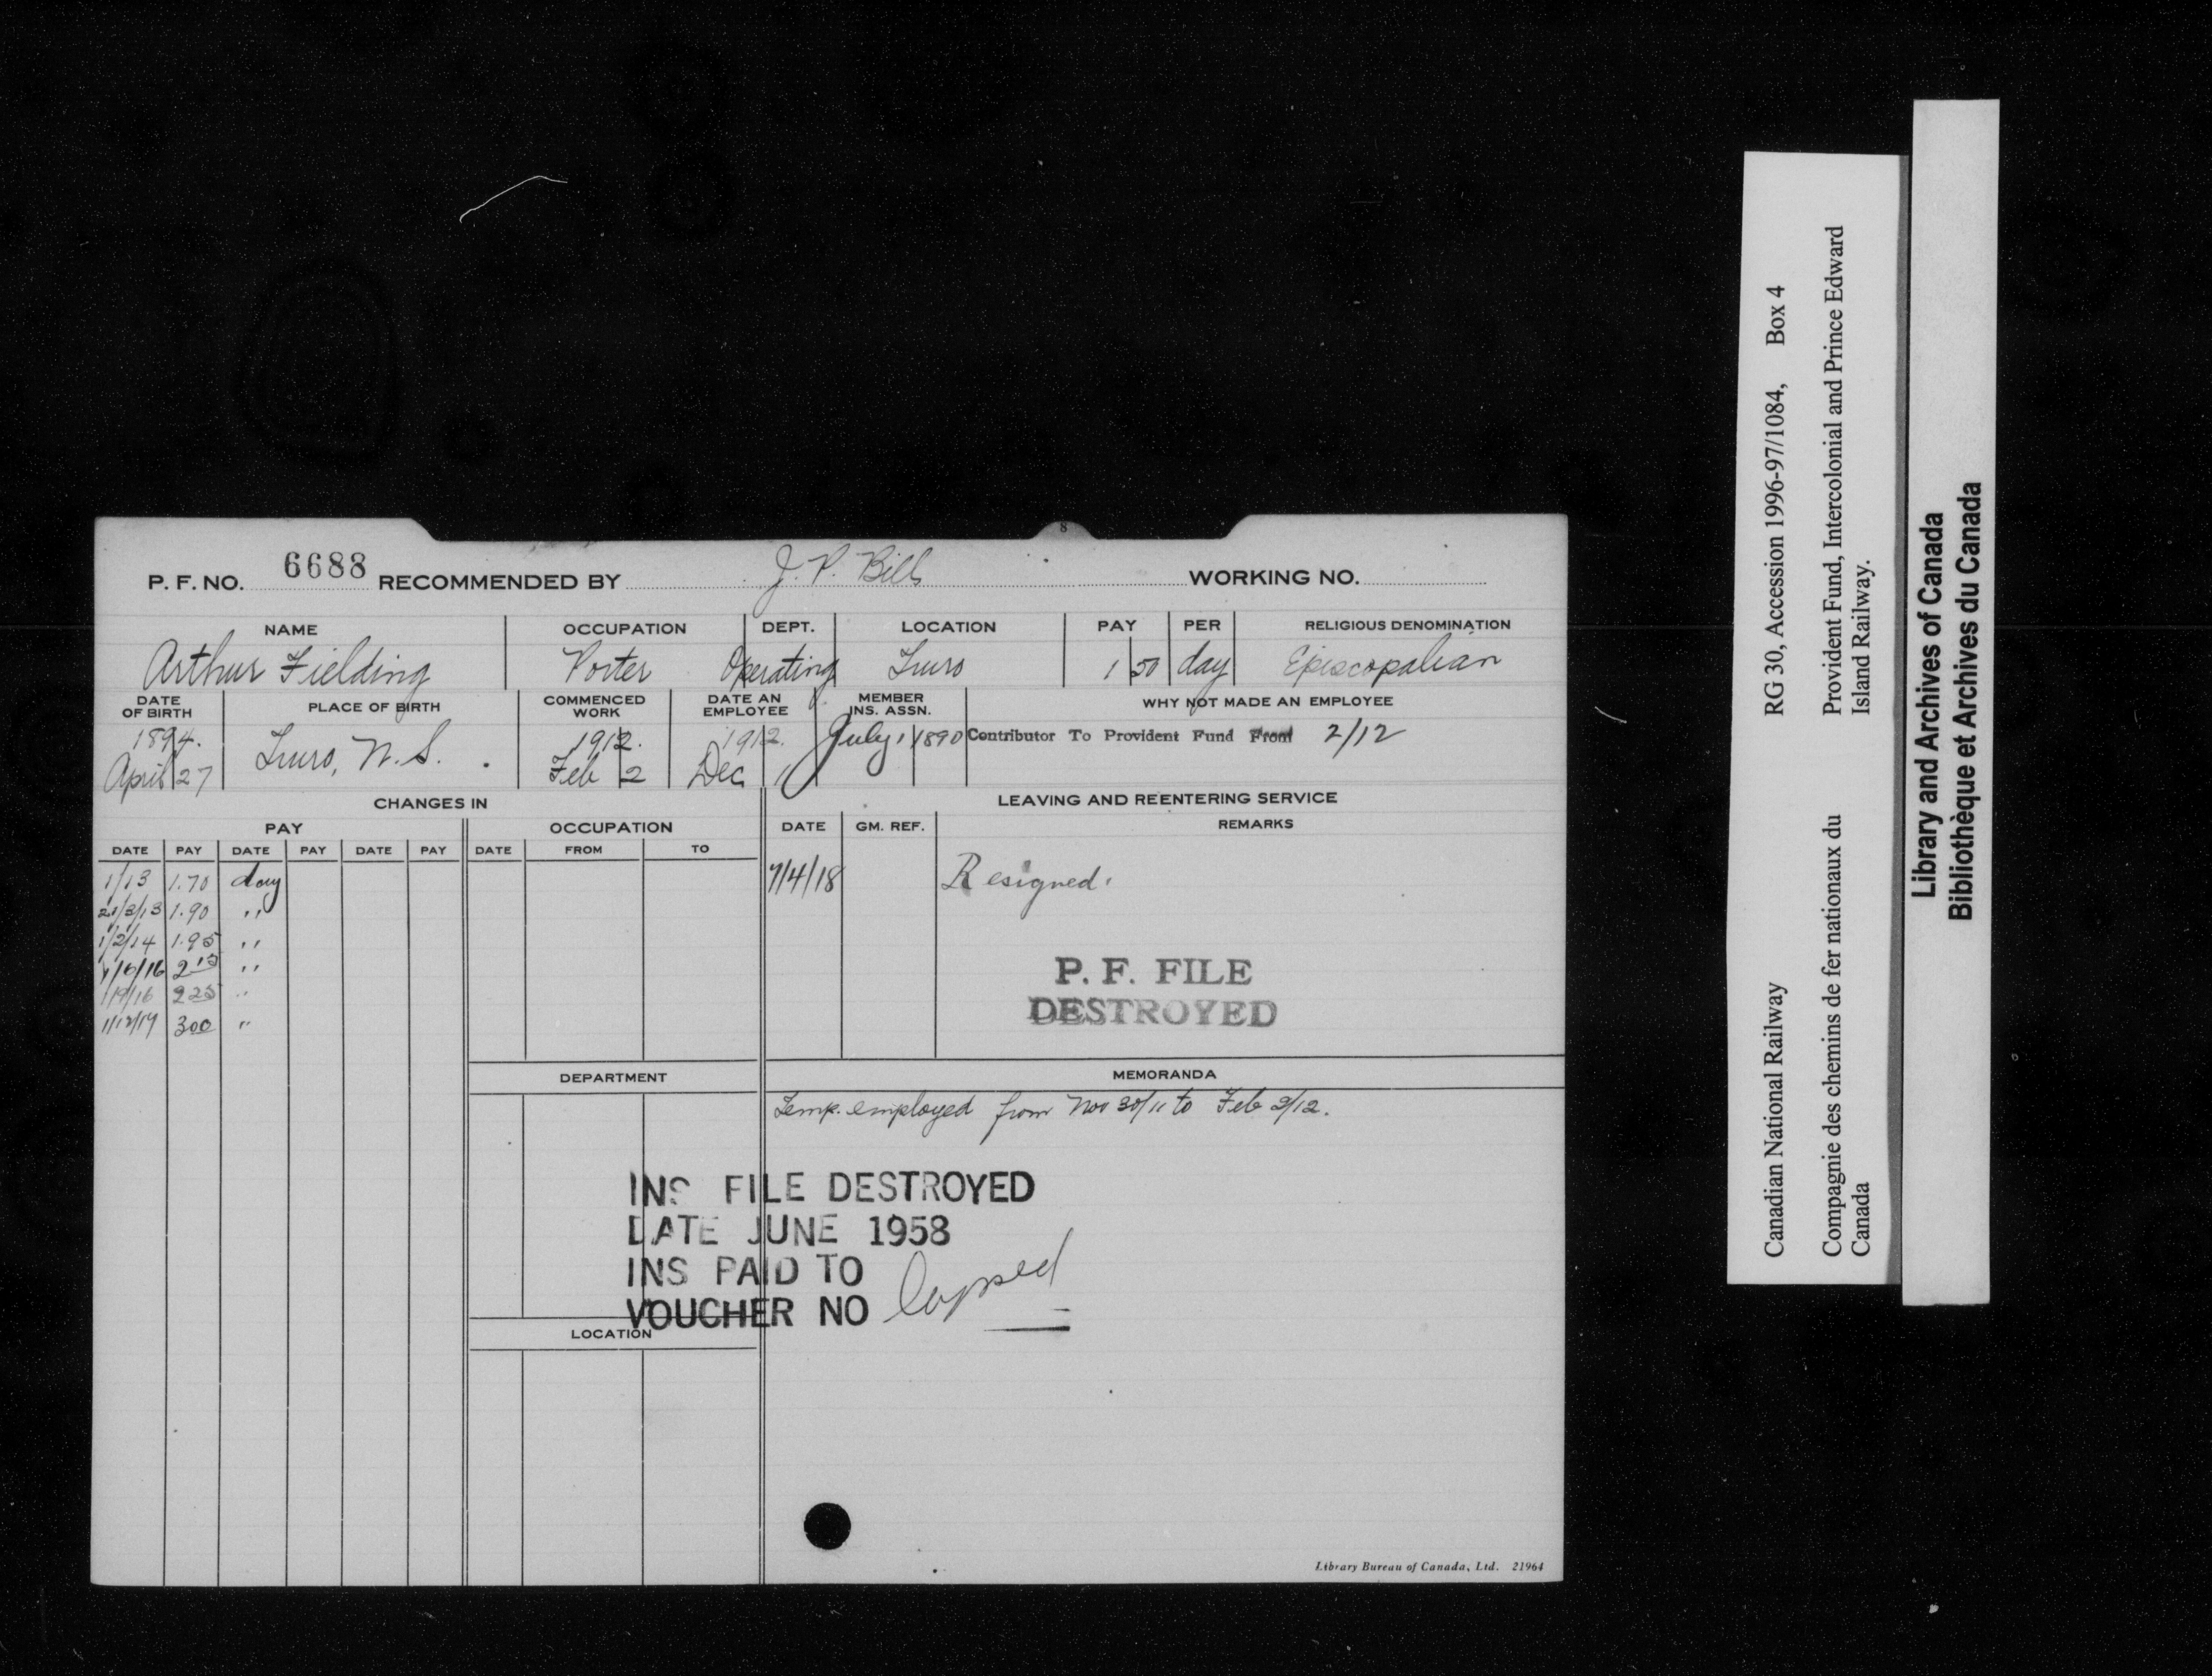 8
P. F. NO. 6688 RECOMMENDED BY J. P. Bill WORKING NO.
NAME OCCUPATION DEPT. LOCATION PAY PER RELIGIOUS DENOMINATION
Arthur Fielding Porter Operating Truro 1 50 day Episcopalian
DATE OF BIRTH PLACE OF BIRTH COMMENCED WORK DATE AN EMPLOYEE MEMBER INS. ASSN. WHY NOT MADE AN EMPLOYEE
1894. 1912. 1912. July 1 1890 Contributor To Provident Fund From 2/12
April 27 Truro, N.S. Feb 2 Dec 11
CHANGES IN LEAVING AND REENTERING SERVICE
PAY OCCUPATION DATE GM. REF. REMARKS
DATE PAY DATE PAY DATE PAY DATE FROM TO
1/13 1.70 day 7/4/18 Resigned.
21/3/13 1.90 "
1/2/14 1.95 "
1/6/16 2 15 "
1/9/16 2 25 "
1/12/17 3 00 "
P. F. FILE
DESTROYED
DEPARTMENT MEMORANDA
Temp. employed from Nov 30/11 to Feb 2/12.
INS FILE DESTROYED
DATE JUNE 1958
INS PAID TO
VOUCHER NO lapsed
LOCATION
Library Bureau of Canada, Ltd. 21964
Canadian National Railway RG 30, Accession 1996-97/1084, Box 4
Compagnie des chemins de fer nationaux du Provident Fund, Intercolonial and Prince Edward
Canada Island Railway.
Library and Archives of Canada
Bibliothèque et Archives du Canada